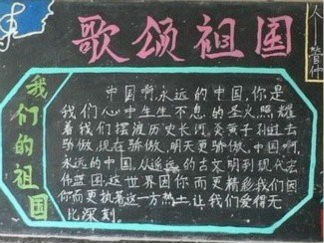 歌颂祖国
人——管仲
我们的祖国
中国啊,永远的中国,你是
我们心中生生不息的圣火,照耀
着我们摆渡历史长河,炎黄子孙过去
骄傲,现在骄傲,明天更骄傲。中国啊,
永远的中国,从遥远的古文明到现代宏
伟蓝图,这世界因你而更精彩,我们因
你而更执着这一方热土,让我们爱得无
比深刻。